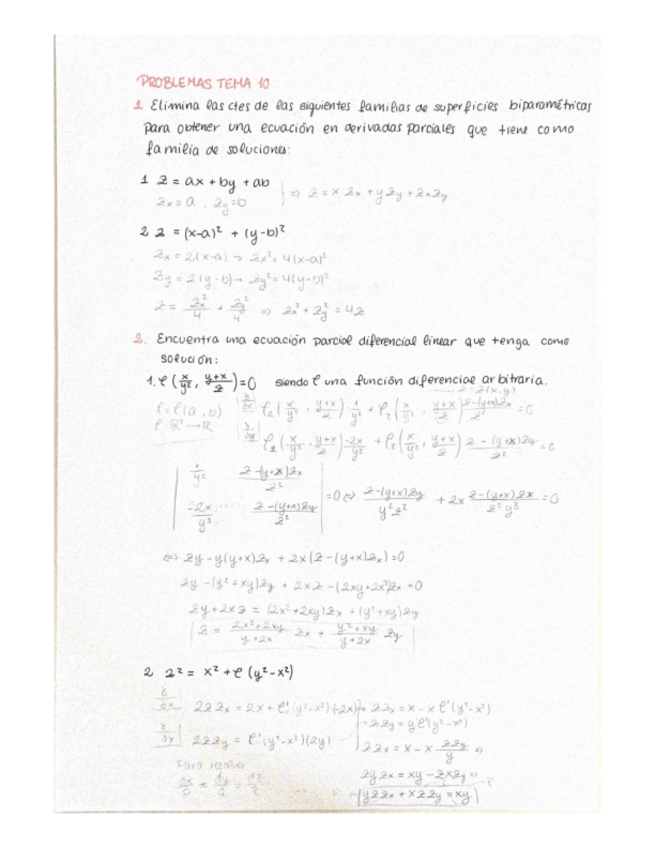 PROBLEMAS TEMA 10
1. Elimina las ctes de las siguientes familias de superficies biparamétricas
para obtener una ecuación en derivadas parciales que tiene como
familia de soluciones:
1 z = ax + by + ab
zx = a , zy = b ⇒ z = x zx + y zy + zx zy
2 z = (x-a)² + (y-b)²
zx = 2(x-a) → zx² = 4(x-a)²
zy = 2(y-b) → zy² = 4(y-b)²
z = zx²/4 + zy²/4 ⇒ zx² + zy² = 4z
2. Encuentra una ecuación parcial diferencial linear que tenga como
solución:
1. φ (x/y², (y+x)/z) = 0 siendo φ una función diferenciae arbitraria.
z = z(x,y)
φ = φ(a,b)
φ: ℝ² → ℝ
∂/∂x φ₁ (x/y², (y+x)/z) · 1/y² + φ₂ (x/y², (y+x)/z) (z-(y+x)zx)/z² = 0
∂/∂y φ₁ (x/y², (y+x)/z) -2x/y³ + φ₂ (x/y², (y+x)/z) (z-(y+x)zy)/z² = 0
| 1/y² (z-(y+x)zx)/z² |
| -2x/y³ (z-(y+x)zy)/z² | = 0 ⇔ (z-(y+x)zy)/(y²z²) + 2x (z-(y+x)zx)/(z²y³) = 0
⇔ zy - y(y+x)zy + 2x(z-(y+x)zx) = 0
zy - (y²+xy)zy + 2xz - (2xy+2x²)zx = 0
zy + 2xz = (2x²+2xy)zx + (y²+xy)zy
z = (2x²+2xy)/(y+2x) zx + (y²+xy)/(y+2x) zy
2 z² = x² + φ (y²-x²)
∂/∂x 2z zx = 2x + φ'(y²-x²)(-2x) z zx = x - x φ'(y²-x²)
z zy = y φ'(y²-x²)
∂/∂y 2z zy = φ'(y²-x²)(2y)
z zx = x - x z zy/y ⇒
Para resolver
dx/P = dy/Q = dz/R
zy zx = xy - z x zy ⇒
y z zx + x z zy = xy